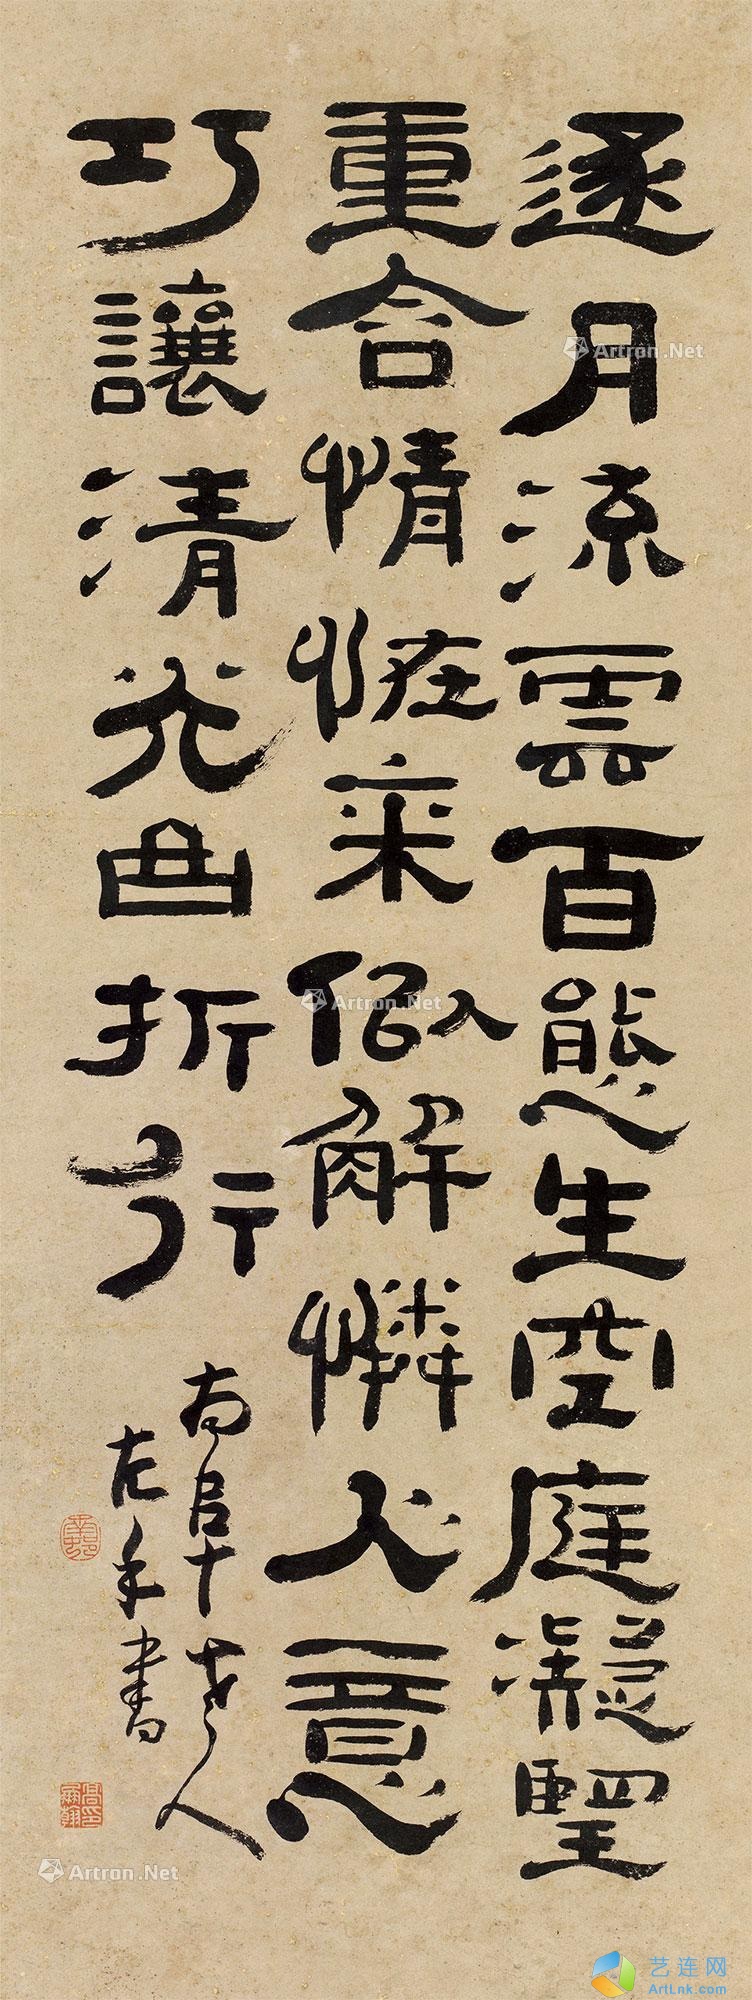 逐月流雲百態生空庭凝望
重含情恠来似解憐人意
巧讓清光曲折行
南阜老人
左手書
Artron.Net
Artron.Net
Artron.Net
艺连网
ArtLnk.com